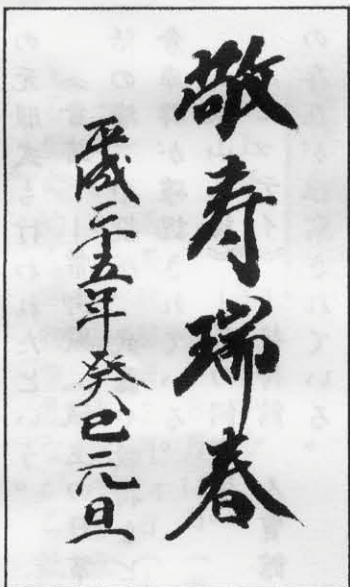 敬寿瑞春
平成二十五年癸巳元旦